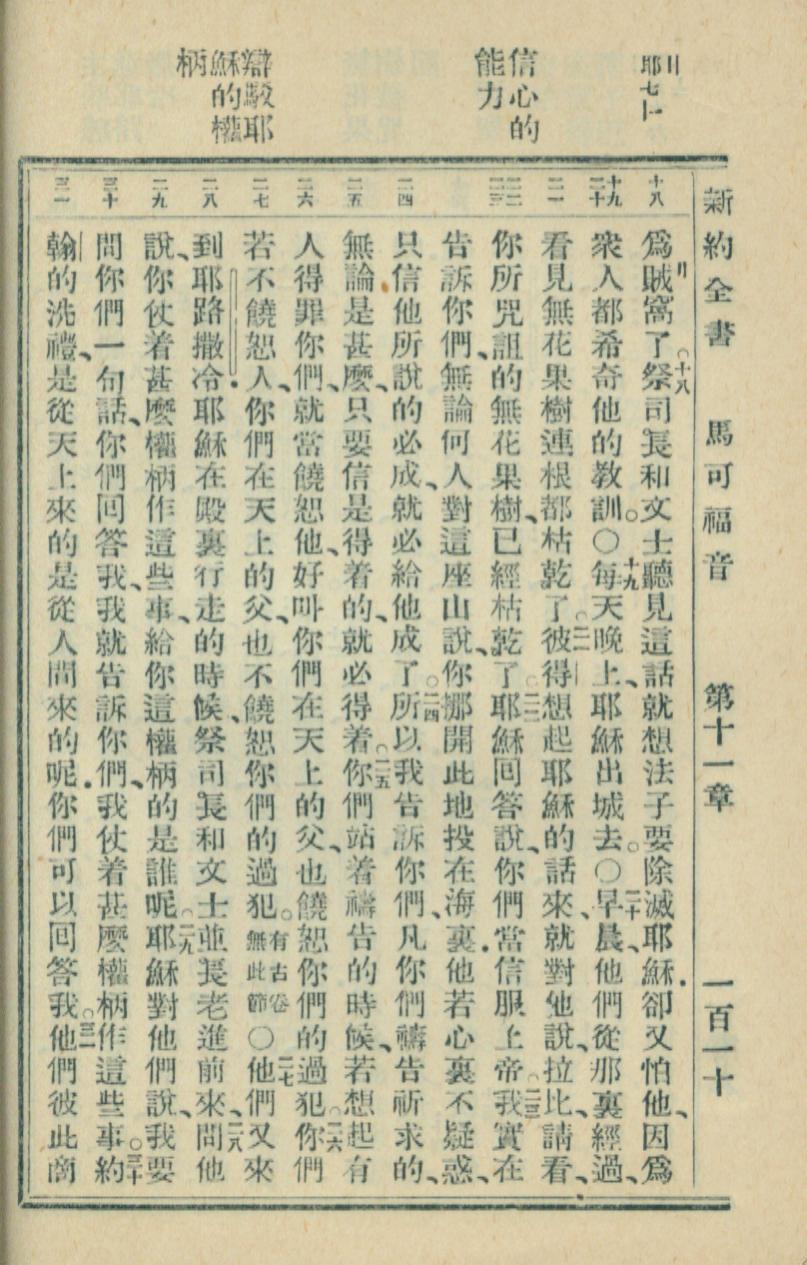 新約全書 馬可福音 第十一章 一百一十
耶七十一
信心的
能力
辯駁耶
穌的權
柄
十八
十九 二十
二一
二二 二三
二四
二五
二六
二七
二八
二九
三十
三一
爲賊窩了○十八祭司長和文士聽見這話就想法子要除滅耶穌．卻又怕他、因爲
衆人都希奇他的教訓。○十九每天晚上、耶穌出城去。○二十早晨、他們從那裏經過、
看見無花果樹連根都枯乾了○二一彼得想起耶穌的話來、就對他說、拉比、請看、
你所咒詛的、無花果樹、已經枯乾了○二二耶穌回答說、你們當信服上帝○二三我實在
告訴你們、無論何人對這座山說、你挪開此地投在海裏．他若心裏不疑惑、
只信他所說的必成、就必給他成了○二四所以我告訴你們、凡你們禱告祈求的、
無論是甚麼、只要信是得着的、就必得着○二五你們站着禱告的時候、若想起有
人得罪你們、就當饒恕他、好叫你們在天上的父、也饒恕你們的過犯○二六你們
若不饒恕人、你們在天上的父、也不饒恕你們的過犯。有古卷無此節○二七他們又來
到耶路撒冷．耶穌在殿裏行走的時候、祭司長和文士並長老進前來、二八問他
說、你仗着甚麼權柄作這些事、給你這權柄的是誰呢○二九耶穌對他們說、我要
問你們一句話、你們回答我、我就告訴你們、我仗着甚麼權柄作這些事○三十約
翰的洗禮、是從天上來的是從人間來的呢．你們可以回答我○三一他們彼此商